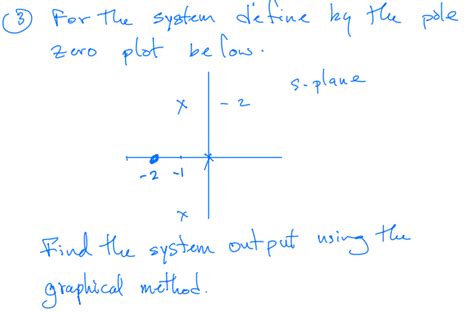 ③ For the system define by the pole
zero plot below.
s-plane
x - 2
x
-2 -1
x
Find the system output using the
graphical method.